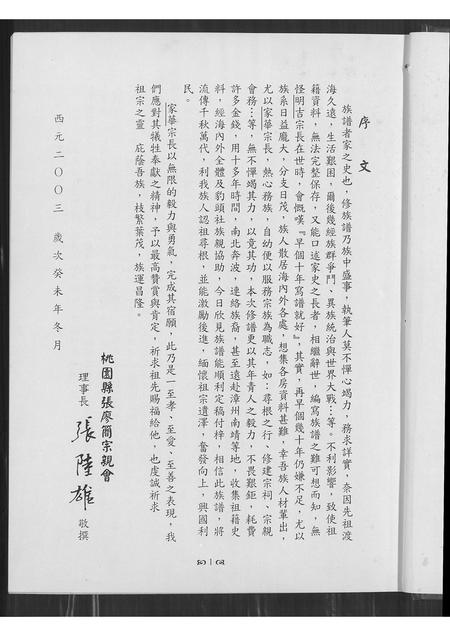 序文
族譜者家之史也，修族譜乃族中盛事，執筆人莫不憚心竭力，務求詳實，奈因先祖渡
海久遠，生活艱困，爾後幾經族群爭鬥、異族統治與世界大戰…等。不利影響，致使祖
籍資料，無法完整保存，又能口述家史之長者，相繼辭世，編寫族譜之難可想而知，無
怪明吉宗長在世時，會慨嘆『早個十年寫譜就好』，其實，再早個幾十年仍嫌不足，尤以
族系日益龐大，分支日茂，族人散居海內外各處，想集各房資料甚難，幸吾族人材輩出，
尤以家華宗長，熱心務族，自幼便以服務宗族為職志，如：尋根之行、修建宗祠、宗親
會務…等，無不憚竭其力，以竟其功，本次修譜更以其年青人之毅力，不畏艱鉅，耗費
許多金錢，用十多年時間，南北奔波，連絡族裔，甚至遠赴漳州南靖等地，收集祖籍史
料，經海內外全體及豹頭社族親協助，今日欣見族譜能順利定稿付梓，相信此族譜，將
流傳千秋萬代，利我族人認祖尋根，並能激勵後進，緬懷祖宗遺澤，奮發向上，興國利
民。
家華宗長以無限的毅力與勇氣，完成其宿願，此乃是一至孝、至愛、至善之表現，我
們應對其犧牲奉獻之精神，予以最高贊賞與肯定，祈求祖先賜福給他，也虔誠祈求
祖宗之靈 庇蔭吾族，枝繁葉茂，族運昌隆。
桃園縣張廖簡宗親會
理事長 張陸雄 敬撰
西元二〇〇三 歲次癸未年冬月